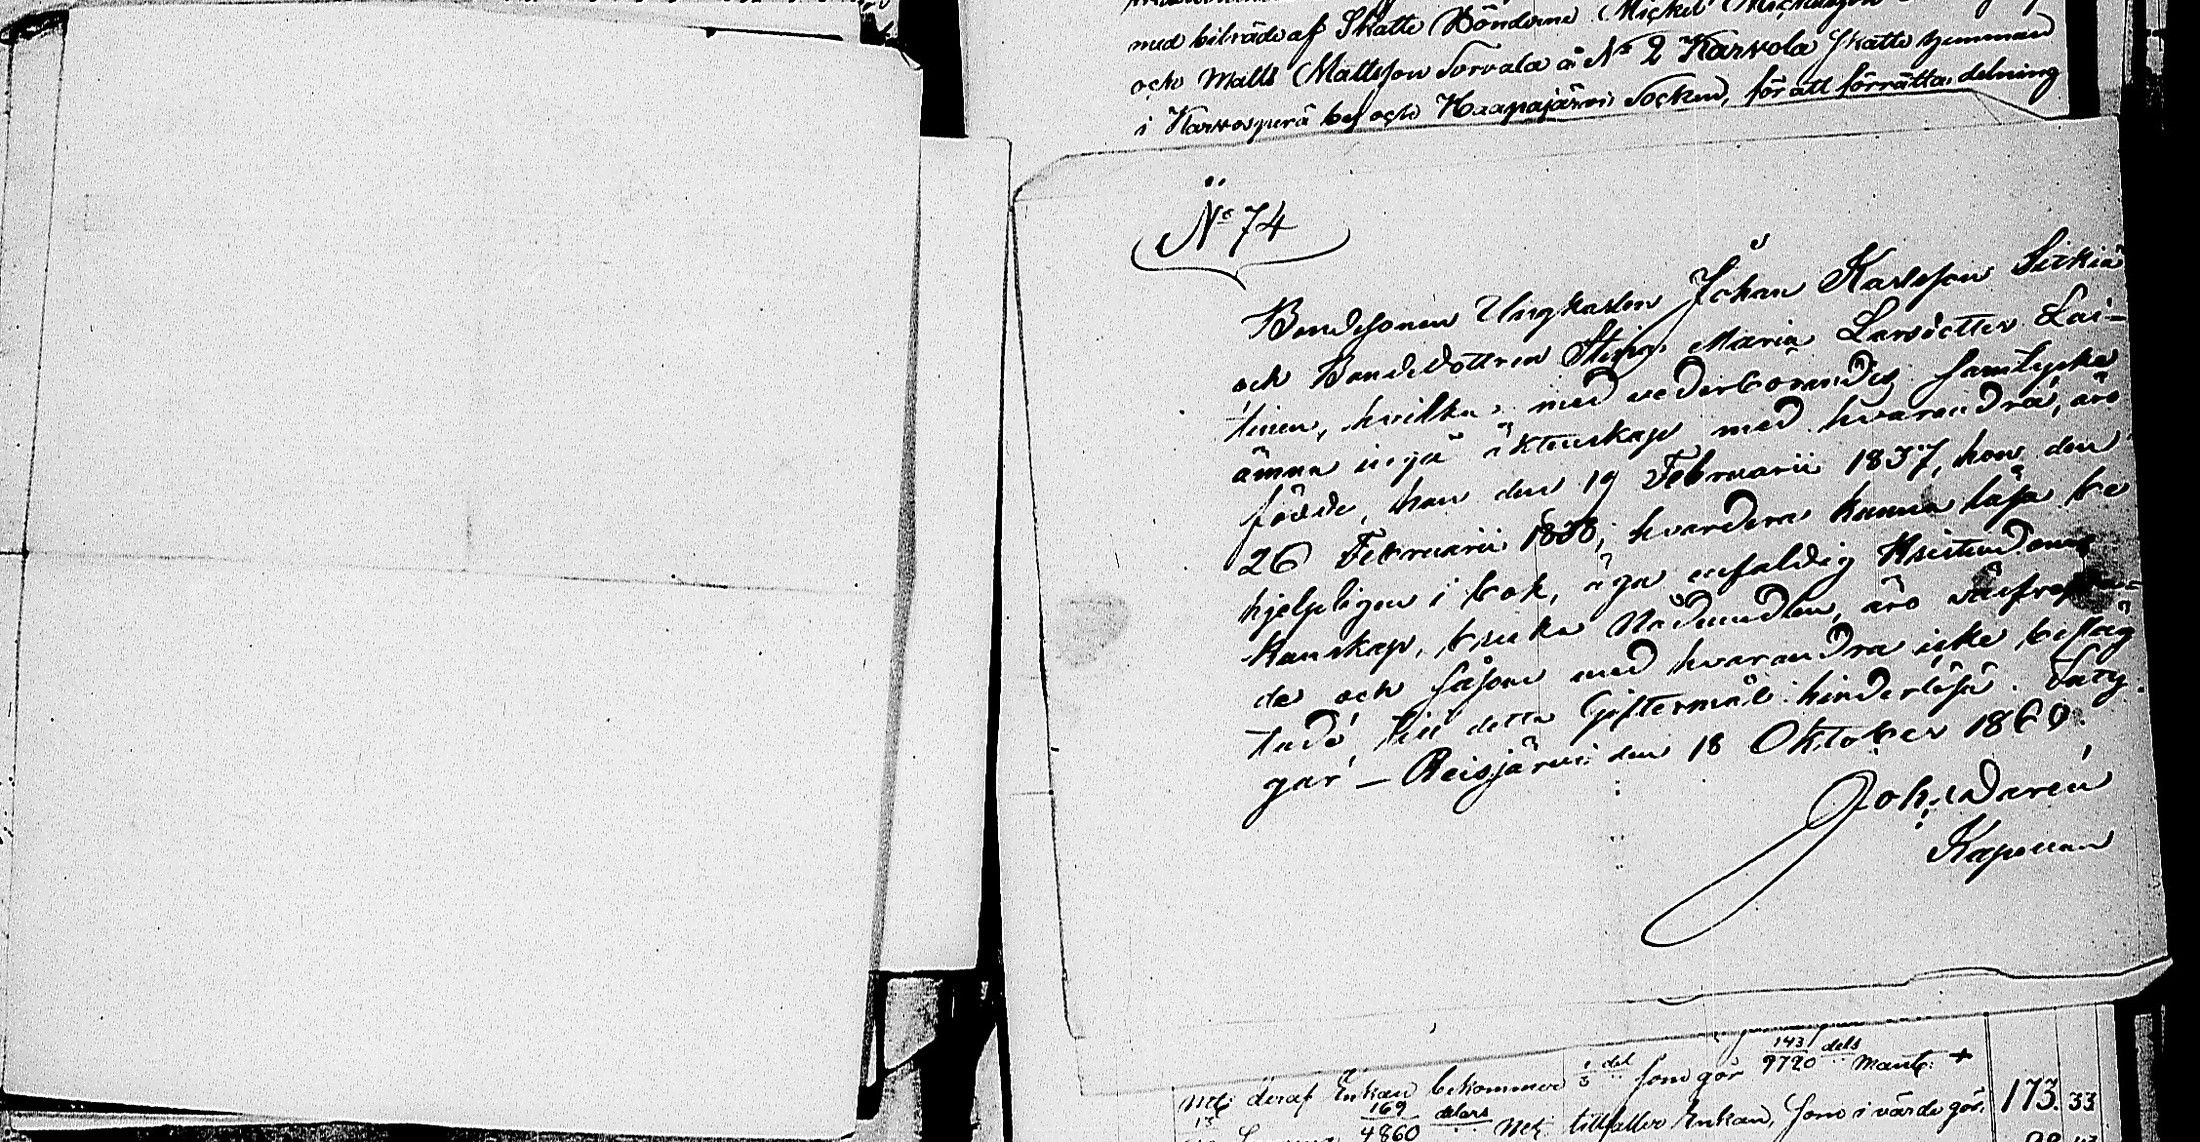 med biträde af Skatte Bönderne Mickel Mickelsson
och Matts Mattsson Torvala å No 2 Karvola Skatte hemman
i Karvosperä by och Haapajärvi Socken, för att förrätta delning
No 74
Bondesonen Ungkarlen Johan Karlsson Sitkiä
och Bondedottren Stina Maria Larsdotter Lai-
tinen, hvilka, med vederbörandes samtycke
ämna ingå äktenskap med hvarandra, äro
födde, han den 19 Februarii 1837, hon den
26 Februarii 1838; hvardera kunna läsa be
hjelpligen i bok, äga enfaldig Kristendoms
kunskap, bruka Nådemedlen, äro väl
de och såsom med hvarandra icke besläg
tade, till detta Giftermål hinderlösa. Inty-
gar – Reisjärvi den 18 Oktober 1860.
Joh. Darén
Kapellan
deraf Enkan bekommer 1/3 del som gör 1431/9720 dels Mantl: +
173. 33
169/4860 delars tillfaller Enkan, som i värde gör.